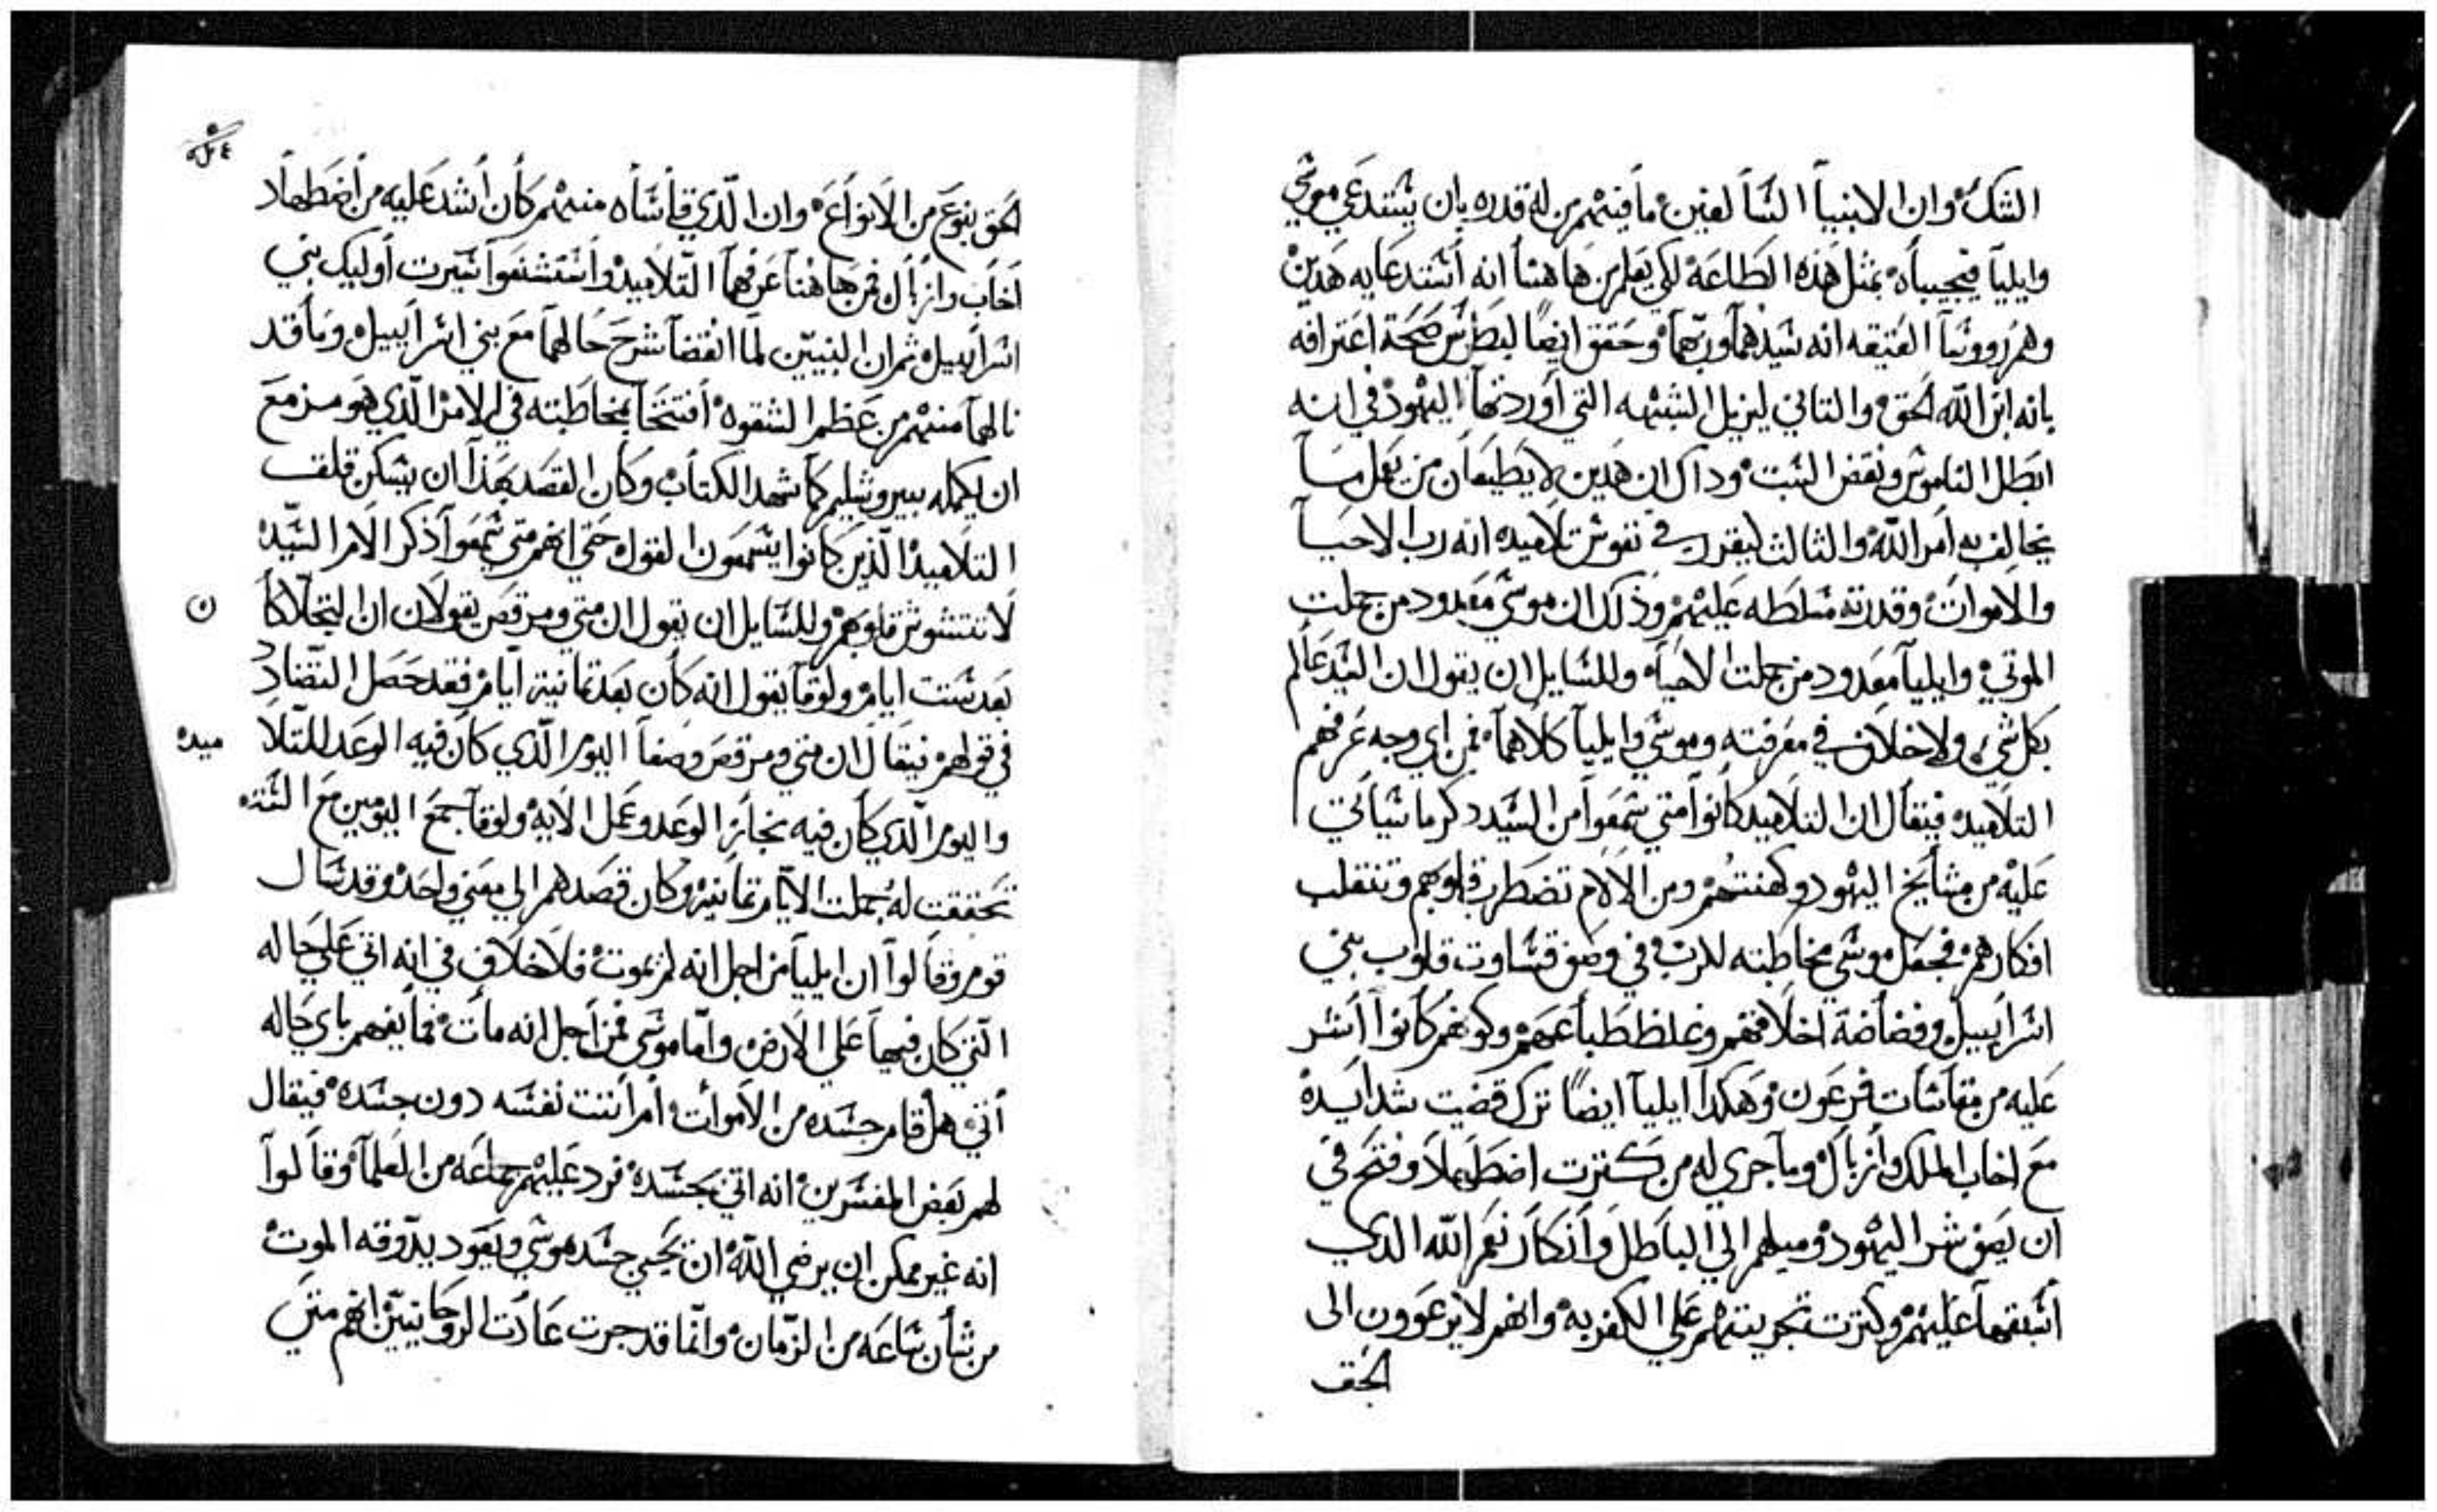 الشك وان الانبيا السالفين ما فيهم من له قدره بان يستدعي موسي
وايليا فيجيباه بمثل هذه الطاعة لكي يعلم من هاهنا انه استدعا به هدين
وهم رووسا العتيقه انه سيدهما وربهما وحقق ايضًا لبطرس صحة اعترافه
بانه ابن الله الحق والتاني ليزيل الشبهه التي اوردتها اليهود في انه
ابطل الناموس ونقض السبت وداك ان هدين لا يطيعان من يعمل مسا
يخالف به امر الله والثالث ليقرر في نفوس تلاميده انه رب الاحيا
والاموات وقدرته مسلطه عليهم وذلك ان موسي معدود من جملت
الموتي وايليا معدود من جملت الاحياه وللسايل ان يقول ان السيد عالم
بكل شي ولا خلاف في معرفته وموسي وايليا كلاهما فمن اي وجه عرفهم
التلاميد فيقال ان التلاميد كانوا متي سمعوا من السيد دكر ما سياتي
عليه من مشايخ اليهود وكهنتهم ومن الالام تضطرب قلوبهم وتنقلب
افكارهم فجعل موسي مخاطبته للرب في وصف قساوت قلوب بني
اسراييل وفضاضة اخلاقهم وغلظ طباعهم وكونهم كانوا اشر
عليه من مقاسات فرعون وهكدا ايليا ايضًا ترك قضيت شدايده
مع اخاب الملك وازبال وما جري له من كترت اضطهلاد وفتح في
ان يصف شر اليهود وميلهم الي الباطل وانكار نعم الله الدي
اسبقها عليهم وكترت تجريتهم علي الكفر به وانهم لا يرعوون الى
الحق
الحق بنوع من الانواع وان الذي قاساه منهم كان اشد عليه من اضطهاد
اخاب وازبال فمن هاهنا عرفهما التلاميد واستشنعوا سيرت أوليك بني
اسراييل ثم ان النبيين لما انقضا شرح حالهما مع بني اسراييل وما قد
نالهما منهم من عظم الشقوه افتتحا بمخاطبته في الامر الذي هو مزمع
ان يكمله بيروشليم كما شهد الكتاب وكان القصد بهذا ان يسكن قلق
التلاميد الذين كانوا يسمعون القول حتي انهم متي سمعوا ذكر الامر السيد
لا تتشوش قلوبهم وللسايل ان يقول ان متي ومرقص يقولان ان التجلا كا ن
بعد ستت ايام ولوقا يقول انه كان بعد تمانية ايام فقد حصل التضاد
في قولهم فيقال ان متي ومرقص وصفا اليوم الذي كان فيه الوعد للتلا ميده
واليوم الذي كان فيه نجاز الوعد وعمل الايه ولوقا جمع اليومين مع السته
تحققت له جملت الايام تمانيه وكان قصدهم الي معني واحد وقد سال
قوم وقالوا ان ايليا من اجل انه لم يموت فلا خلاف في انه اتي علي حاله
التي كان فيها علي الارض واما موسي فمن اجل انه مات فما يفهم باي حاله
أتي هل قام جسده من الاموات أم أتت نفسه دون جسده فيقال
لهم بعض المفسرين انه اتي بجسده فرد عليهم جماعه من العلما وقالوا
انه غير ممكن ان يرضي الله ان يحيي جسد موسي ويعود يدوقه الموت
من شان ساعه من الزمان وانما قد جرت عادت الروحانيين انهم متي